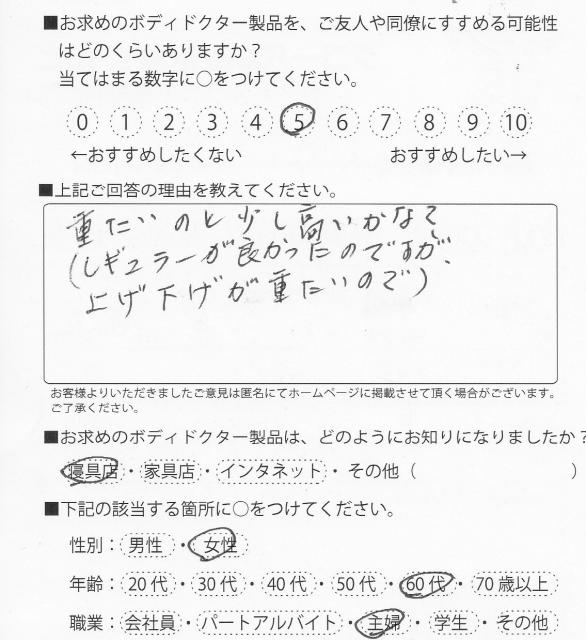 ■お求めのボディドクター製品を、ご友人や同僚にすすめる可能性
はどのくらいありますか？
当てはまる数字に○をつけてください。
0 1 2 3 4 5 6 7 8 9 10
←おすすめしたくない おすすめしたい→
■上記ご回答の理由を教えてください。
重たいのと少し高いかなで
(レギュラーが良かったのですが、
上げ下げが重たいので)
お客様よりいただきましたご意見は匿名にてホームページに掲載させて頂く場合がございます。
ご了承ください。
■お求めのボディドクター製品は、どのようにお知りになりましたか？
寝具店・家具店・インタネット・その他（ ）
■下記の該当する箇所に○をつけてください。
性別：男性・女性
年齢：20代・30代・40代・50代・60代・70歳以上
職業：会社員・パートアルバイト・主婦・学生・その他